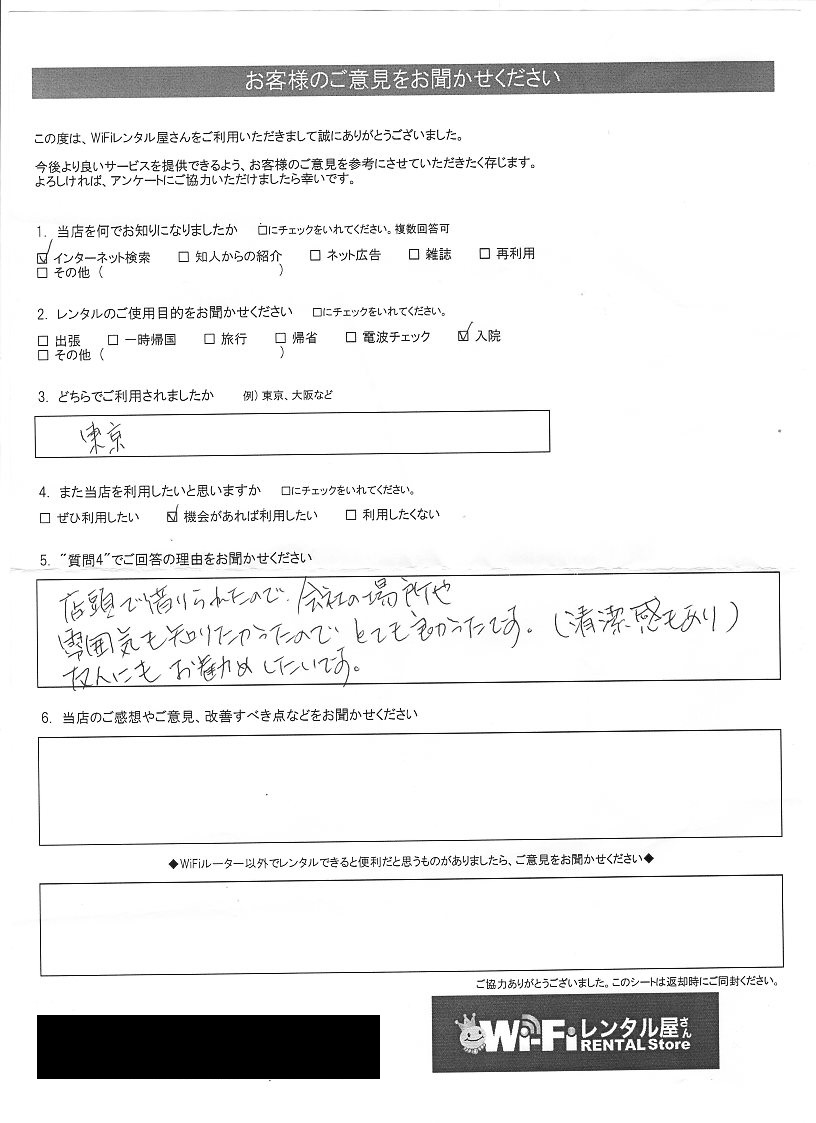 お客様のご意見をお聞かせください
この度は、WiFiレンタル屋さんをご利用いただきまして誠にありがとうございました。
今後より良いサービスを提供できるよう、お客様のご意見を参考にさせていただきたく存じます。
よろしければ、アンケートにご協力いただけましたら幸いです。
1. 当店を何でお知りになりましたか □にチェックをいれてください。複数回答可
☑ インターネット検索 □ 知人からの紹介 □ ネット広告 □ 雑誌 □ 再利用
□ その他 ( )
2. レンタルのご使用目的をお聞かせください □にチェックをいれてください。
□ 出張 □ 一時帰国 □ 旅行 □ 帰省 □ 電波チェック ☑ 入院
□ その他 ( )
3. どちらでご利用されましたか 例) 東京、大阪など
東京
4. また当店を利用したいと思いますか □にチェックをいれてください。
□ ぜひ利用したい ☑ 機会があれば利用したい □ 利用したくない
5. "質問4"でご回答の理由をお聞かせください
店頭で借りられたので、会社の場所や
雰囲気も知りたかったので、とても良かったです。(清潔感もあり)
友人にもお勧めしたいです。
6. 当店のご感想やご意見、改善すべき点などをお聞かせください
◆WiFiルーター以外でレンタルできると便利だと思うものがありましたら、ご意見をお聞かせください◆
ご協力ありがとうございました。このシートは返却時にご同封ください。
Wi-Fiレンタル屋さん
RENTAL Store